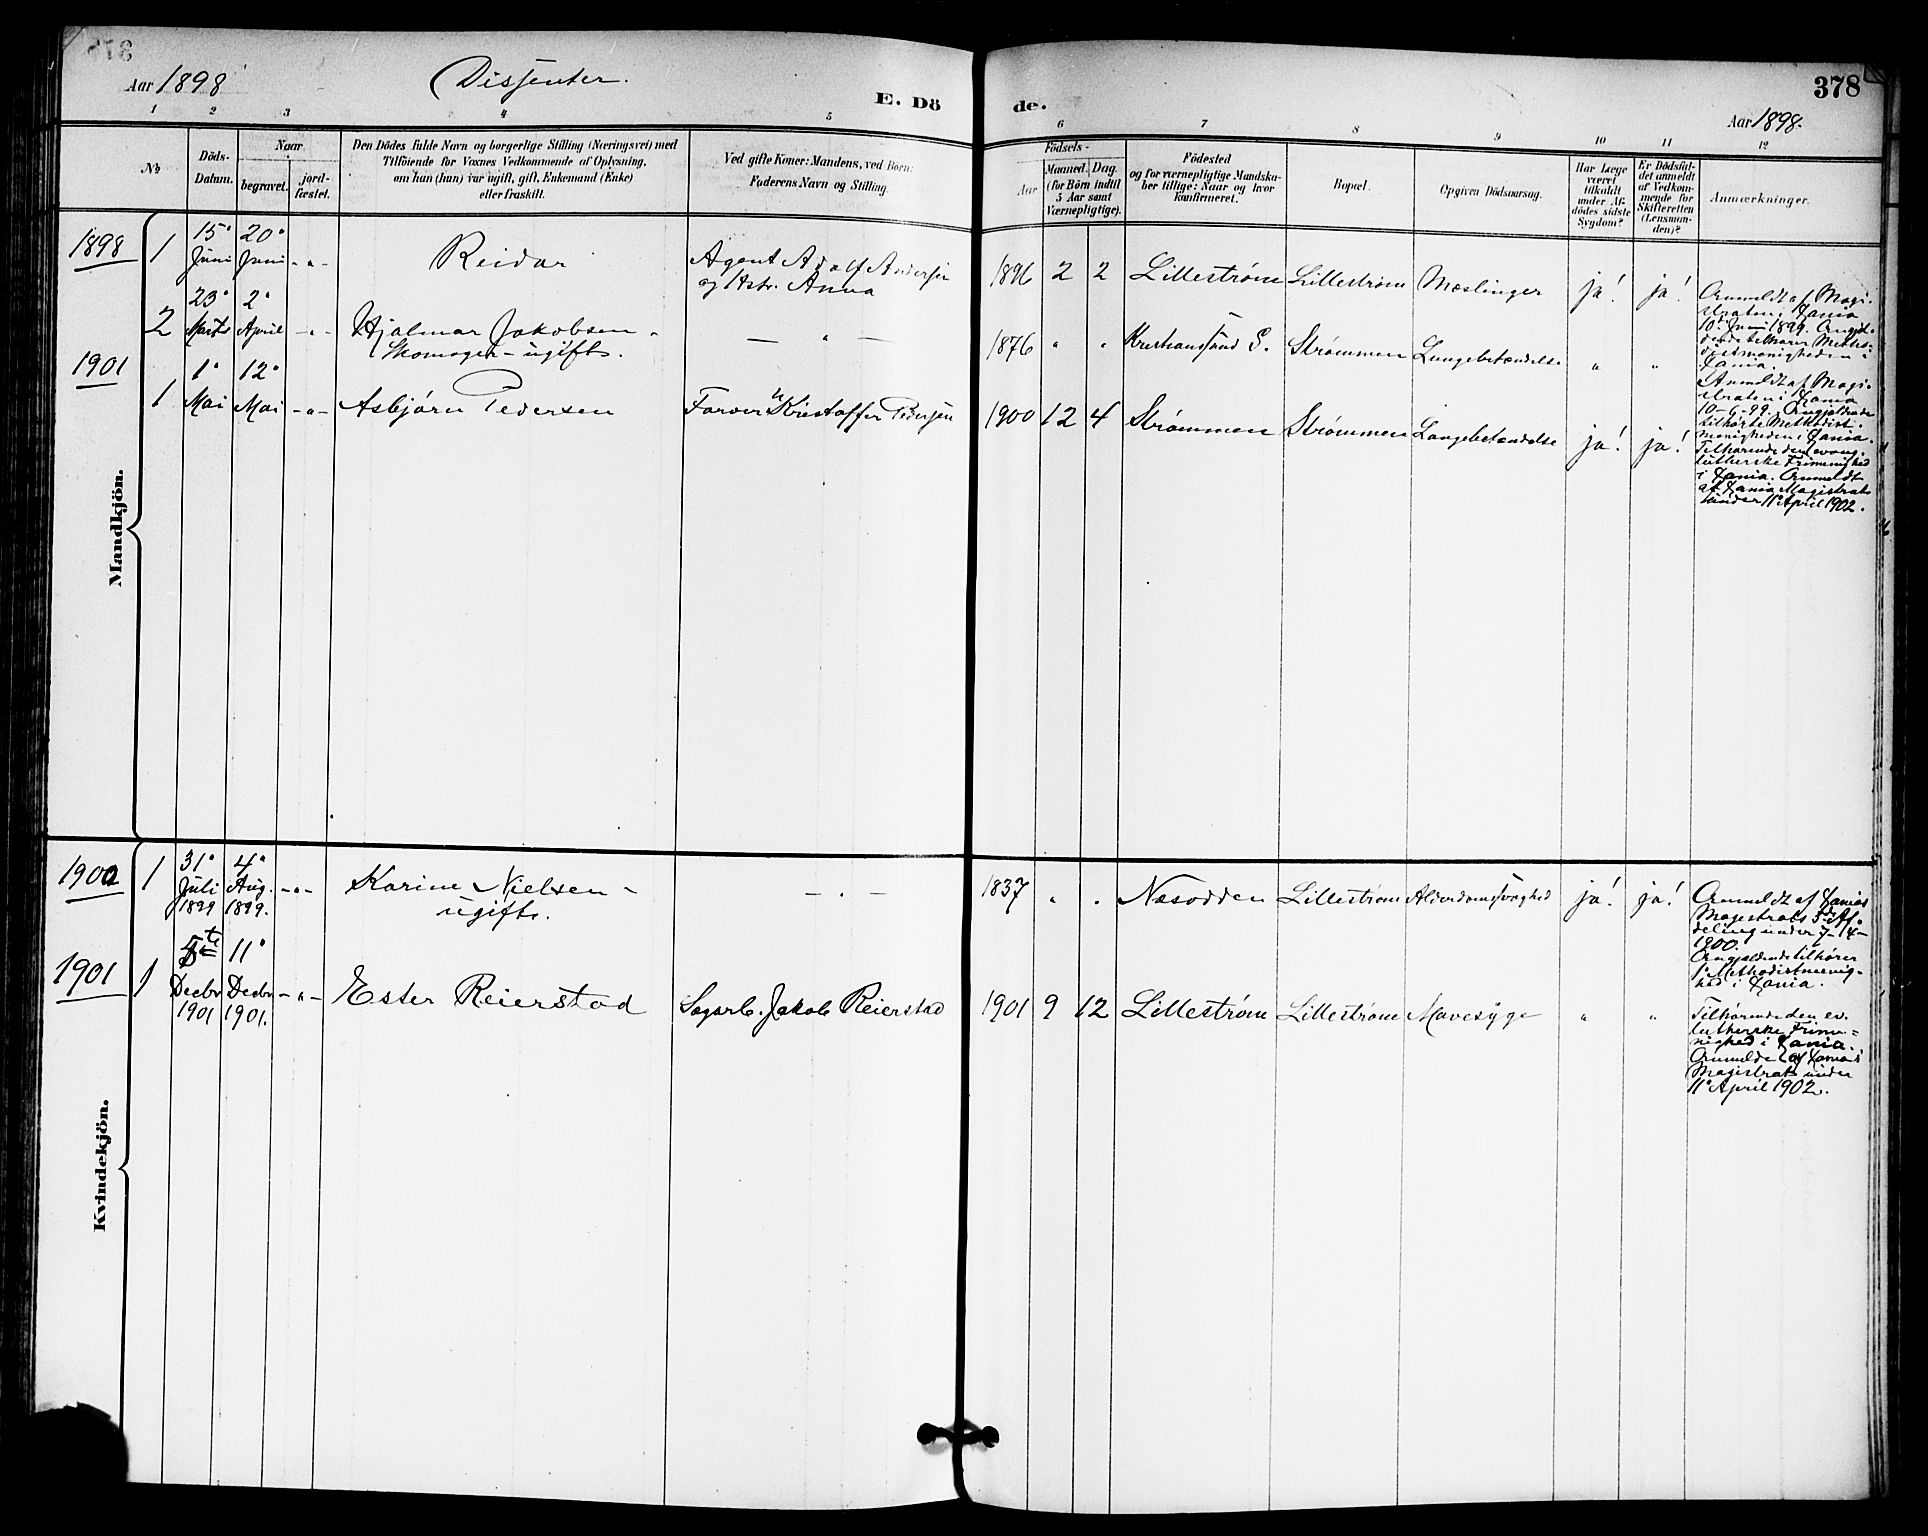 Aar 1898
Dissenter.
E. Dö
de.
378
Aar 1898.
1 2 3 4 5 6 7 8 9 10 11 12
No
Döds-
Datum.
Naar
begravet.
jord-
fæstet.
Den Dödes fulde Navn og borgerlige Stilling (Næringsvei) med
Tilföiende for Voxnes Vedkommende af Oplysning,
om han (hun) var ugift, gift, Enkemand (Enke)
eller fraskilt.
Ved gifte Koner: Mandens, ved Börn:
Faderens Navn og Stilling.
Födsels-
Aar
Maaned. Dag.
(for Börn indtil
5 Aar samt
Værnepligtige).
Födested
og for værnepligtige Mandska-
ber tillige: Naar og hvor
konfirmeret.
Bopæl.
Opgiven Dödsaarsag.
Har Læge
været
tilkaldt
under Af-
dödes sidste
Sygdom?
Er Dödsfal-
det anmeldt
af Vedkom-
mende for
Skifteretten
(Lensman-
den)?
Anmærkninger.
Mandkjön.
1898
1
15de
Juni
20de
Juni
- " -
Reidar
Agent Adolf Andersen
og Hstr. Anna
1896 2 2
Lillestrøm
Lillestrøm
Mæslinger
ja!
ja!
Anmeldt af Magi-
straten i Xania
10de Juni 1899. Angjæl-
dende tilhører Metho-
distmenigheden i
Xania.
2
23de
Marts
2de
April
- " -
Hjalmar Jakobsen -
Skomager - ugift.
— " —
1876 " "
Kristianssund S.
Strømmen
Lungebetændelse
" "
Anmeldt af Magi-
straten i Xania
10-6-99. Angjældende
tilhørte Methodist-
menigheden i Xania.
1901
1
1de
Mai
12de
Mai
- " -
Asbjørn Pedersen
Farver Kristoffer Pedersen
1900 12 4
Strømmen
Strømmen
Lungebetændelse
ja!
ja!
Tilhørende den evang.
lutherske Frimenighed
i Xania. Anmeldt
af Xania Magistrat
under 11te April 1902.
Kvindekjön.
1900
1
31de
Juli
1899
4de
Aug.
1899.
- " -
Karine Nielsen -
ugift.
— " —
1837 " "
Næsodden
Lillestrøm
Alderdomssvaghed
ja!
ja!
Anmeldt af Xanias
Magistrats 5de Af-
deling under 7-4-
1900.
Angjældende tilhører
1ste Methodistmenig-
hed i Xania.
1901
1
5te
Decbr
1901
11de
Decbr
1901.
- " -
Ester Reierstad
Sagarb. Jakob Reierstad
1901 9 12
Lillestrøm
Lillestrøm
Mavesyge
" "
Tilhørende den ev.
lutherske Frime-
nighed i Xania.
Anmeldt af Xania's
Magistrat under
11te April 1902.